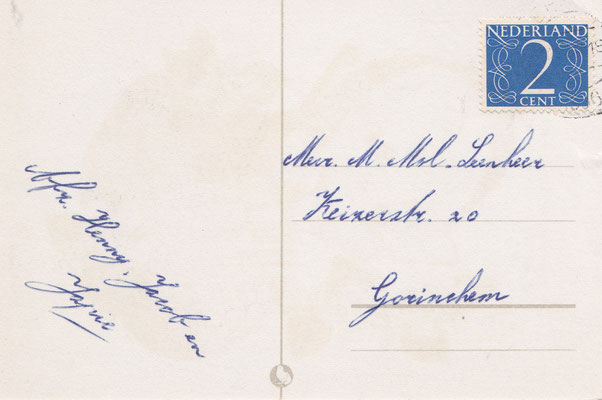 NEDERLAND
2
CENT
Mevr. M. Mol-Leenheer
Keizerstr. 20
Gorinchem
Afz. Henny, Jacob en
Japie